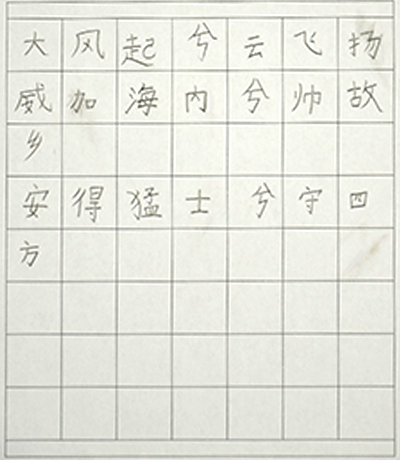 大风起兮云飞扬
威加海内兮帅故
乡
安得猛士兮守四
方